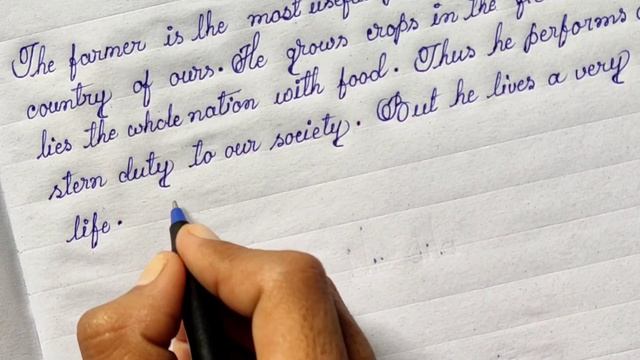 The farmer is the most useful
country of ours. He grows crops in the
lies the whole nation with food. Thus he performs a
stern duty to our society. But he lives a very
life.